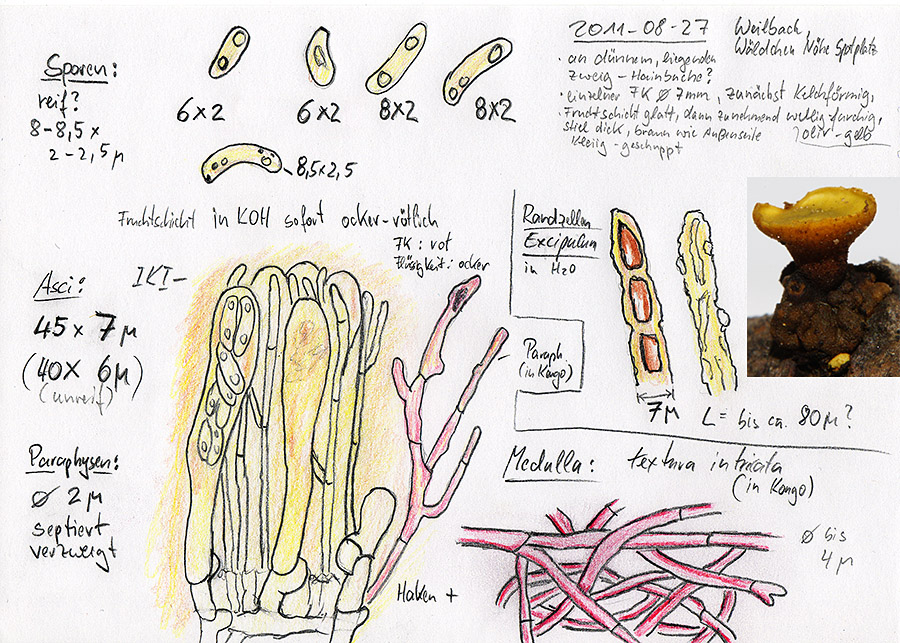 Sporen:
reif?
8-8,5 x
2-2,5 µ
6x2
6x2
8x2
8x2
8,5x2,5
2011-08-27
Weilbach,
Wäldchen Nähe Sportplatz
· an dünnem, liegenden
Zweig - Hainbuche?
· einzelner FK Ø 7mm, zunächst Kelchförmig,
· Fruchtschicht glatt, dann zunehmend wellig-furchig,
oliv-gelb
Stiel dick, braun wie Außenseite
kleiig-geschuppt
Fruchtschicht in KOH sofort ocker-rötlich
FK: rot
Flüssigkeit: ocker
Asci:
IKI-
45 x 7 µ
(40x 6µ)
(unreif)
Paraphysen:
Ø 2 µ
septiert
verzweigt
Haken +
Randzellen
Excipulum
in H2O
Paraph.
(in Kongo)
7µ
L = bis ca. 80 µ?
Medulla:
textura intricata
(in Kongo)
Ø bis
4 µ